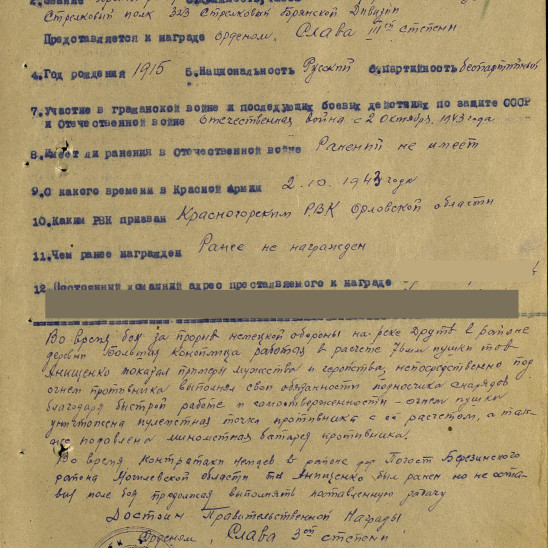 2. Звание
Стрелковый полк 323 Стрелковый Брянской Дивизии
Представляется к награде орденом "Слава III ой степени
4. Год рождения 1915 5. Национальность Русский 6. Партийность беспартийный
7. Участие в гражданской войне и последующих боевых действиях по защите СССР
и Отечественной войне Отечественная война с 2 октября 1943 года
8. Имеет ли ранения в Отечественной войне Ранений не имеет
9. С какого времени в Красной Армии 2.10.1943 года
10. Каким РВК призван Красногорским РВК Орловской области
11. Чем ранее награжден Ранее не награжден
12. Постоянный домашний адрес преставляемого к награде
Во время боя за прорыв немецкой обороны на реке Друть в районе
деревни Большая Конопница работая в расчете 76мм пушки тов
Анищенко показал примеры мужества и геройства, непосредственно под
огнем противника выполнял свои обязанности подносчика снарядов
благодаря быстрой работе и самоотверженности - огнем пушки
уничтожена пулеметная точка противника с её расчетом, а так-
же подавлена минометная батарея противника.
Во время контратаки немцев в районе дер Погост Березинского
района Могилевской области тов Анищенко был ранен но не оста-
вил поле боя продолжая выполнять поставленную задачу
Достоин Правительственной Награды
Орденом "Слава 3 ой степени